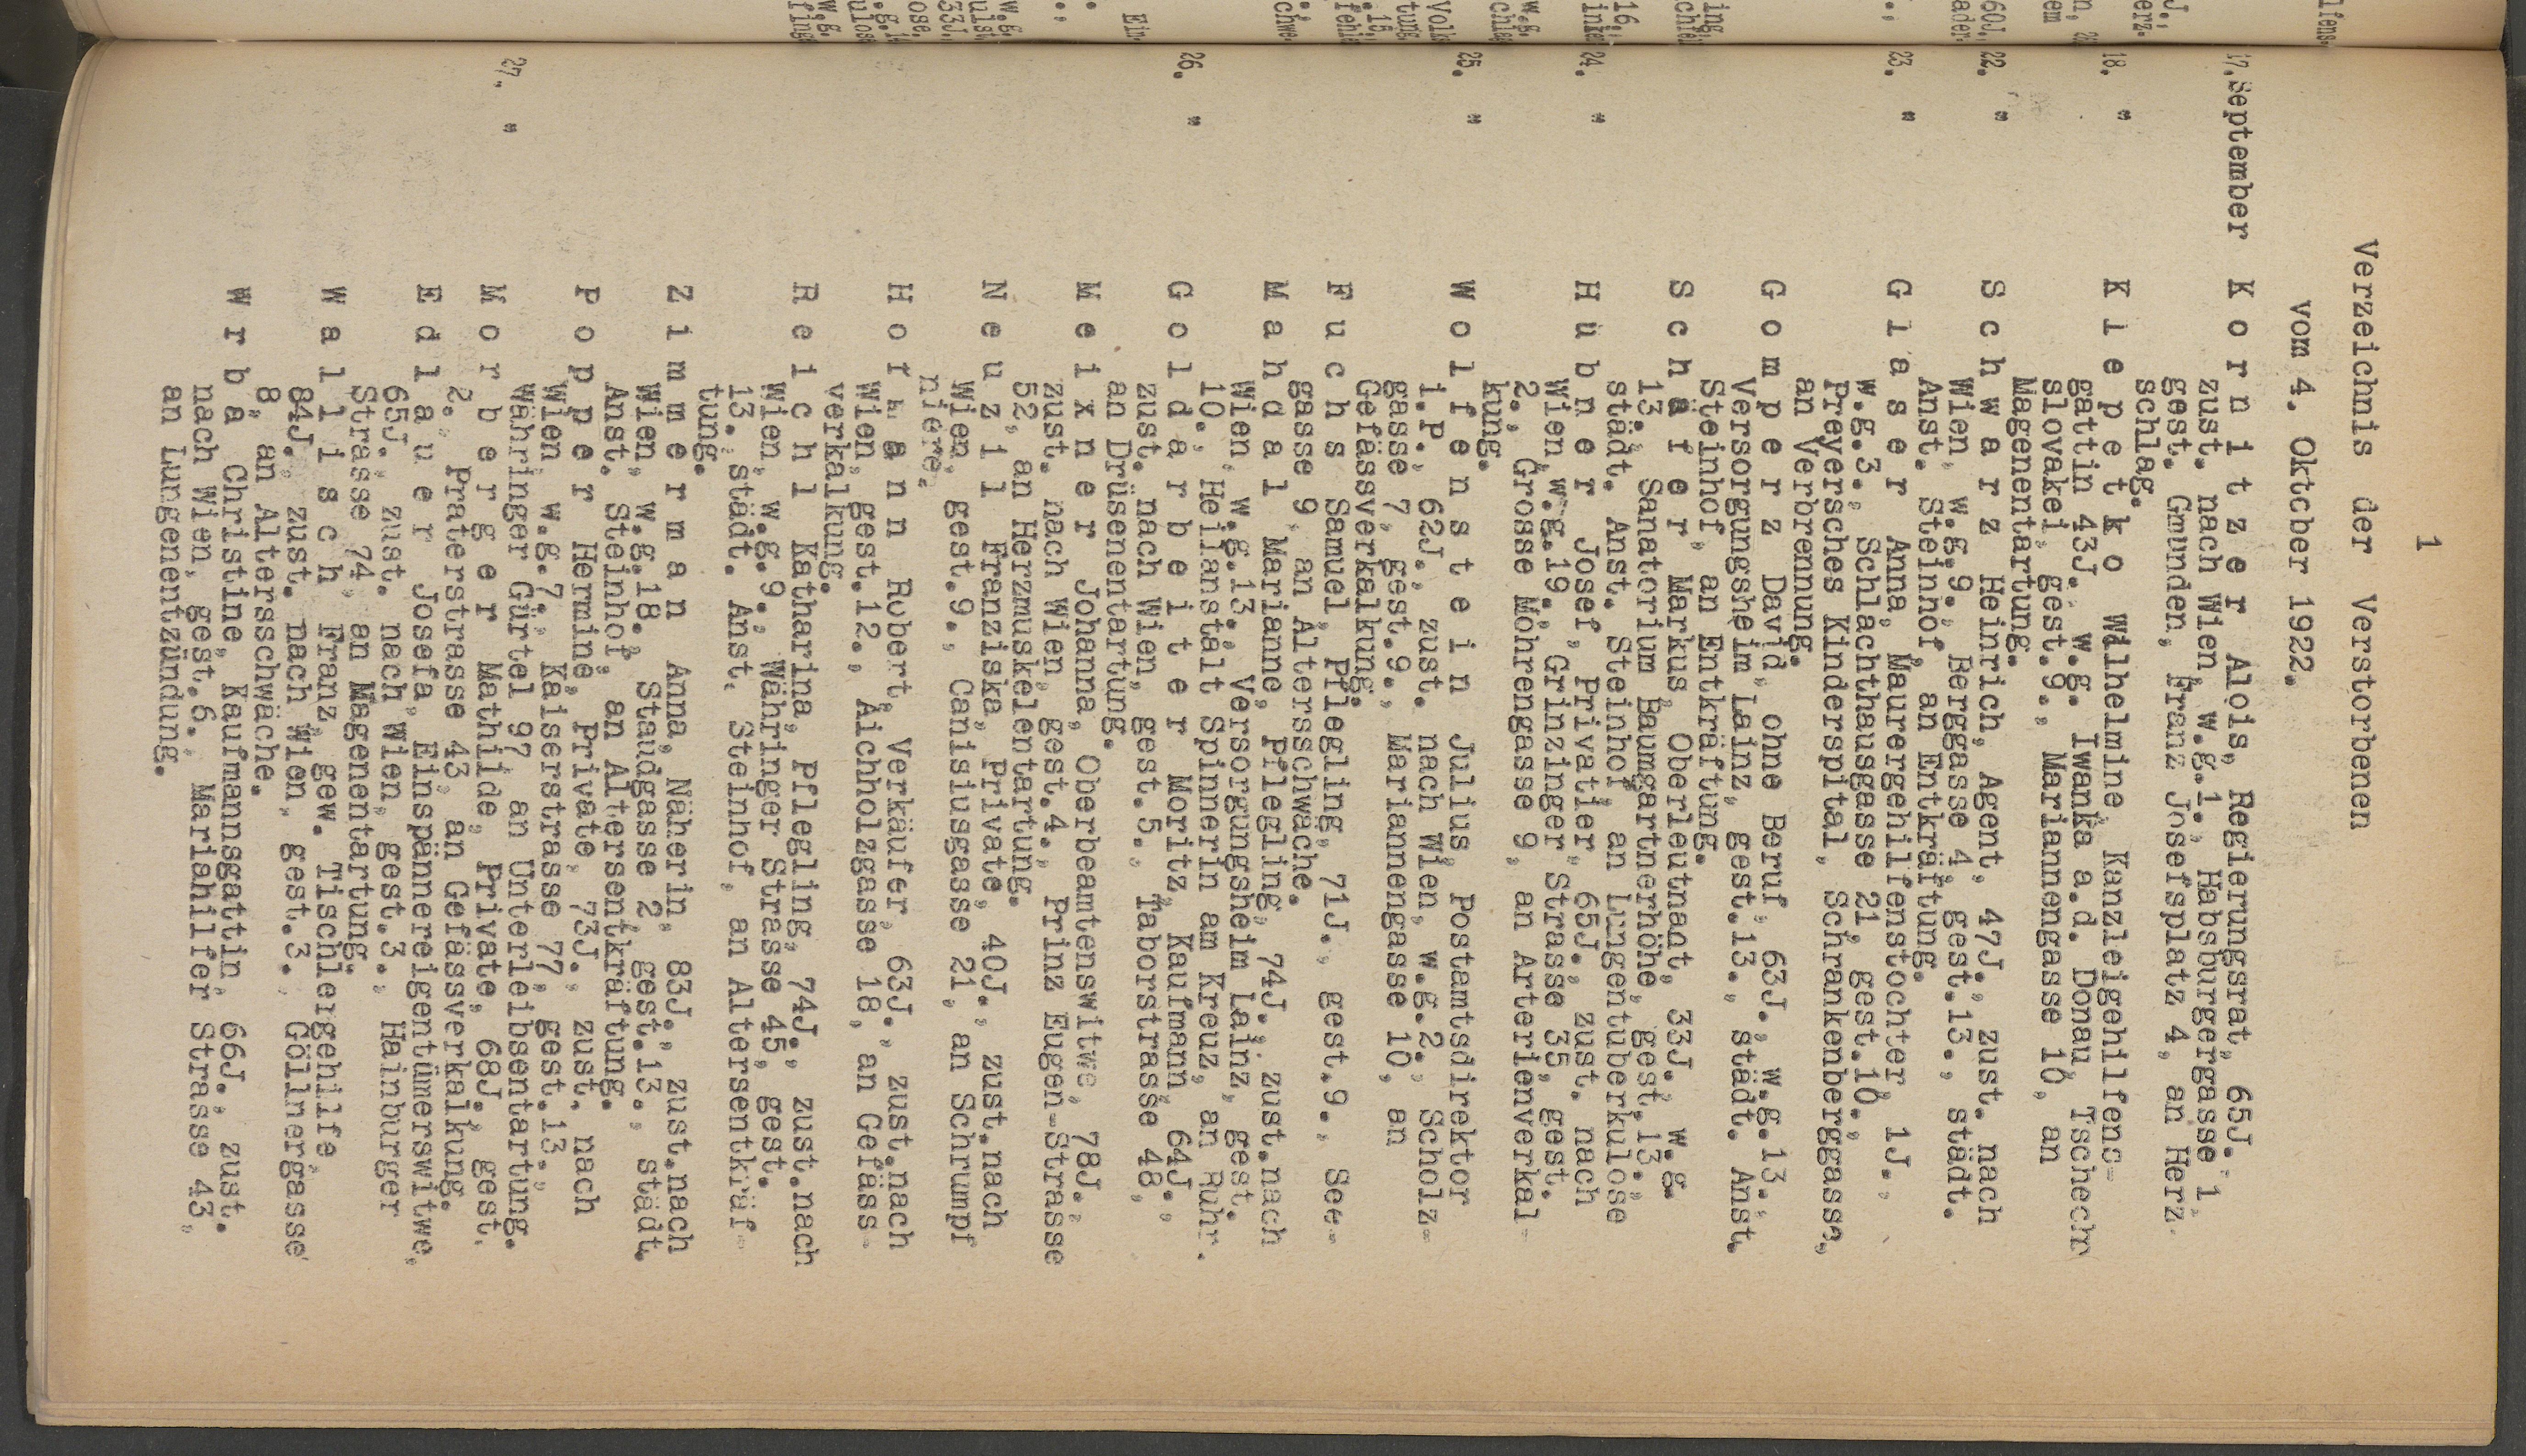 1
Verzeichnis der Verstorbenen
vom 4. Oktober 1922.
17.September K o r n i t z e r Alois, Regierungsrat, 65J.,
zust. nach Wien, w.g.1., Habsburgergasse 1,
gest. Gmunden, Franz Josefsplatz 4, an Herz
schlag.
18. " K l e p e t k o Wilhelmine, Kanzleigehilfens-
gattin 43J., w.g. Iwanka a.d. Donau, Tschecho
slovakei, gest.9., Mariannengasse 10, an
Magenentartung.
22. " S c h w a r z Heinrich, Agent, 47J., zust. nach
Wien, w.g.9., Berggasse 4, gest.13., städt.
Anst. Steinhof, an Entkräftung.
23. " G l a s e r Anna, Maurergehilfenstochter, 1J.,
w.g.3., Schlachthausgasse 21, gest.10.,
Preyersches Kinderspital, Schrankenberggasse,
an Verbrennung.
G o m p e r z David, ohne Beruf, 63J., w.g.13.,
Versorgungsheim Lainz, gest.13., städt. Anst.
Steinhof, an Entkräftung.
S c h ä f e r Markus, Oberleutnant, 33J., w.g.
13., Sanatorium Baumgartnerhöhe, gest.13.,
städt. Anst. Steinhof, an Lungentuberkulose
24. " H ü b n e r Josef, Privatier, 65J., zust. nach
Wien, w.g.19., Grinzinger Strasse 35, gest.
2., Grosse Mohrengasse 9, an Arterienverkal-
kung.
25. " W o l f e n s t e i n Julius, Postamtsdirektor
i.P., 62J., zust. nach Wien, w.g.2., Scholz-
gasse 7, gest.9., Mariannengasse 10, an
Gefässverkalkung.
F u c h s Samuel, Pflegling, 71J., gest.9., See-
gasse 9, an Altersschwäche.
M a h d a l Marianne, Pflegling, 74J., zust.nach
Wien, w.g.13., Versorgungsheim Lainz, gest.
10., Heilanstalt Spinnerin am Kreuz, an Ruhr.
26. " G o l d a r b e i t e r Moritz, Kaufmann, 64J.,
zust. nach Wien, gest.5., Taborstrasse 48,
an Drüsenentartung.
M e i x n e r Johanna, Oberbeamtenswitwe, 78J.,
zust. nach Wien, gest.4., Prinz Eugen-Strasse
52, an Herzmuskelentartung.
N e u z i l Franziska, Private, 40J., zust.nach
Wien, gest.9., Canisiusgasse 21, an Schrumpf
niere.
H o r m a n n Robert, Verkäufer, 63J., zust.nach
Wien, gest.12., Aichholzgasse 18, an Gefäss-
verkalkung.
R e i c h l Katharina, Pflegling, 74J., zust.nach
Wien, w.g.9., Währinger Strasse 45, gest.
13., städt. Anst. Steinhof, an Altersentkräf-
tung.
Z i m m e r m a n Anna, Näherin, 83J., zust.nach
Wien, w.g.18., Staudgasse 2, gest.13., städt.
Anst. Steinhof, an Altersentkräftung.
P o p p e r Hermine, Private, 73J., zust. nach
Wien, w.g.7., Kaiserstrasse 77, gest.13.,
Währinger Gürtel 97, an Unterleibsentartung.
27. " M o r b e r g e r Mathilde, Private, 68J., gest.
2., Praterstrasse 43, an Gefässverkalkung.
E d l a u e r Josefa, Einspännereigentümerswitwe,
65J., zust. nach Wien, gest.3., Hainburger
Strasse 74, an Magenentartung.
W a l i s c h Franz, gew. Tischlergehilfe,
84J., zust. nach Wien, gest.3., Göllnergasse
8, an Altersschwäche.
W r b a Christine, Kaufmannsgattin, 66J., zust.
nach Wien, gest.6., Mariahilfer Strasse 43,
an Lungenentzündung.